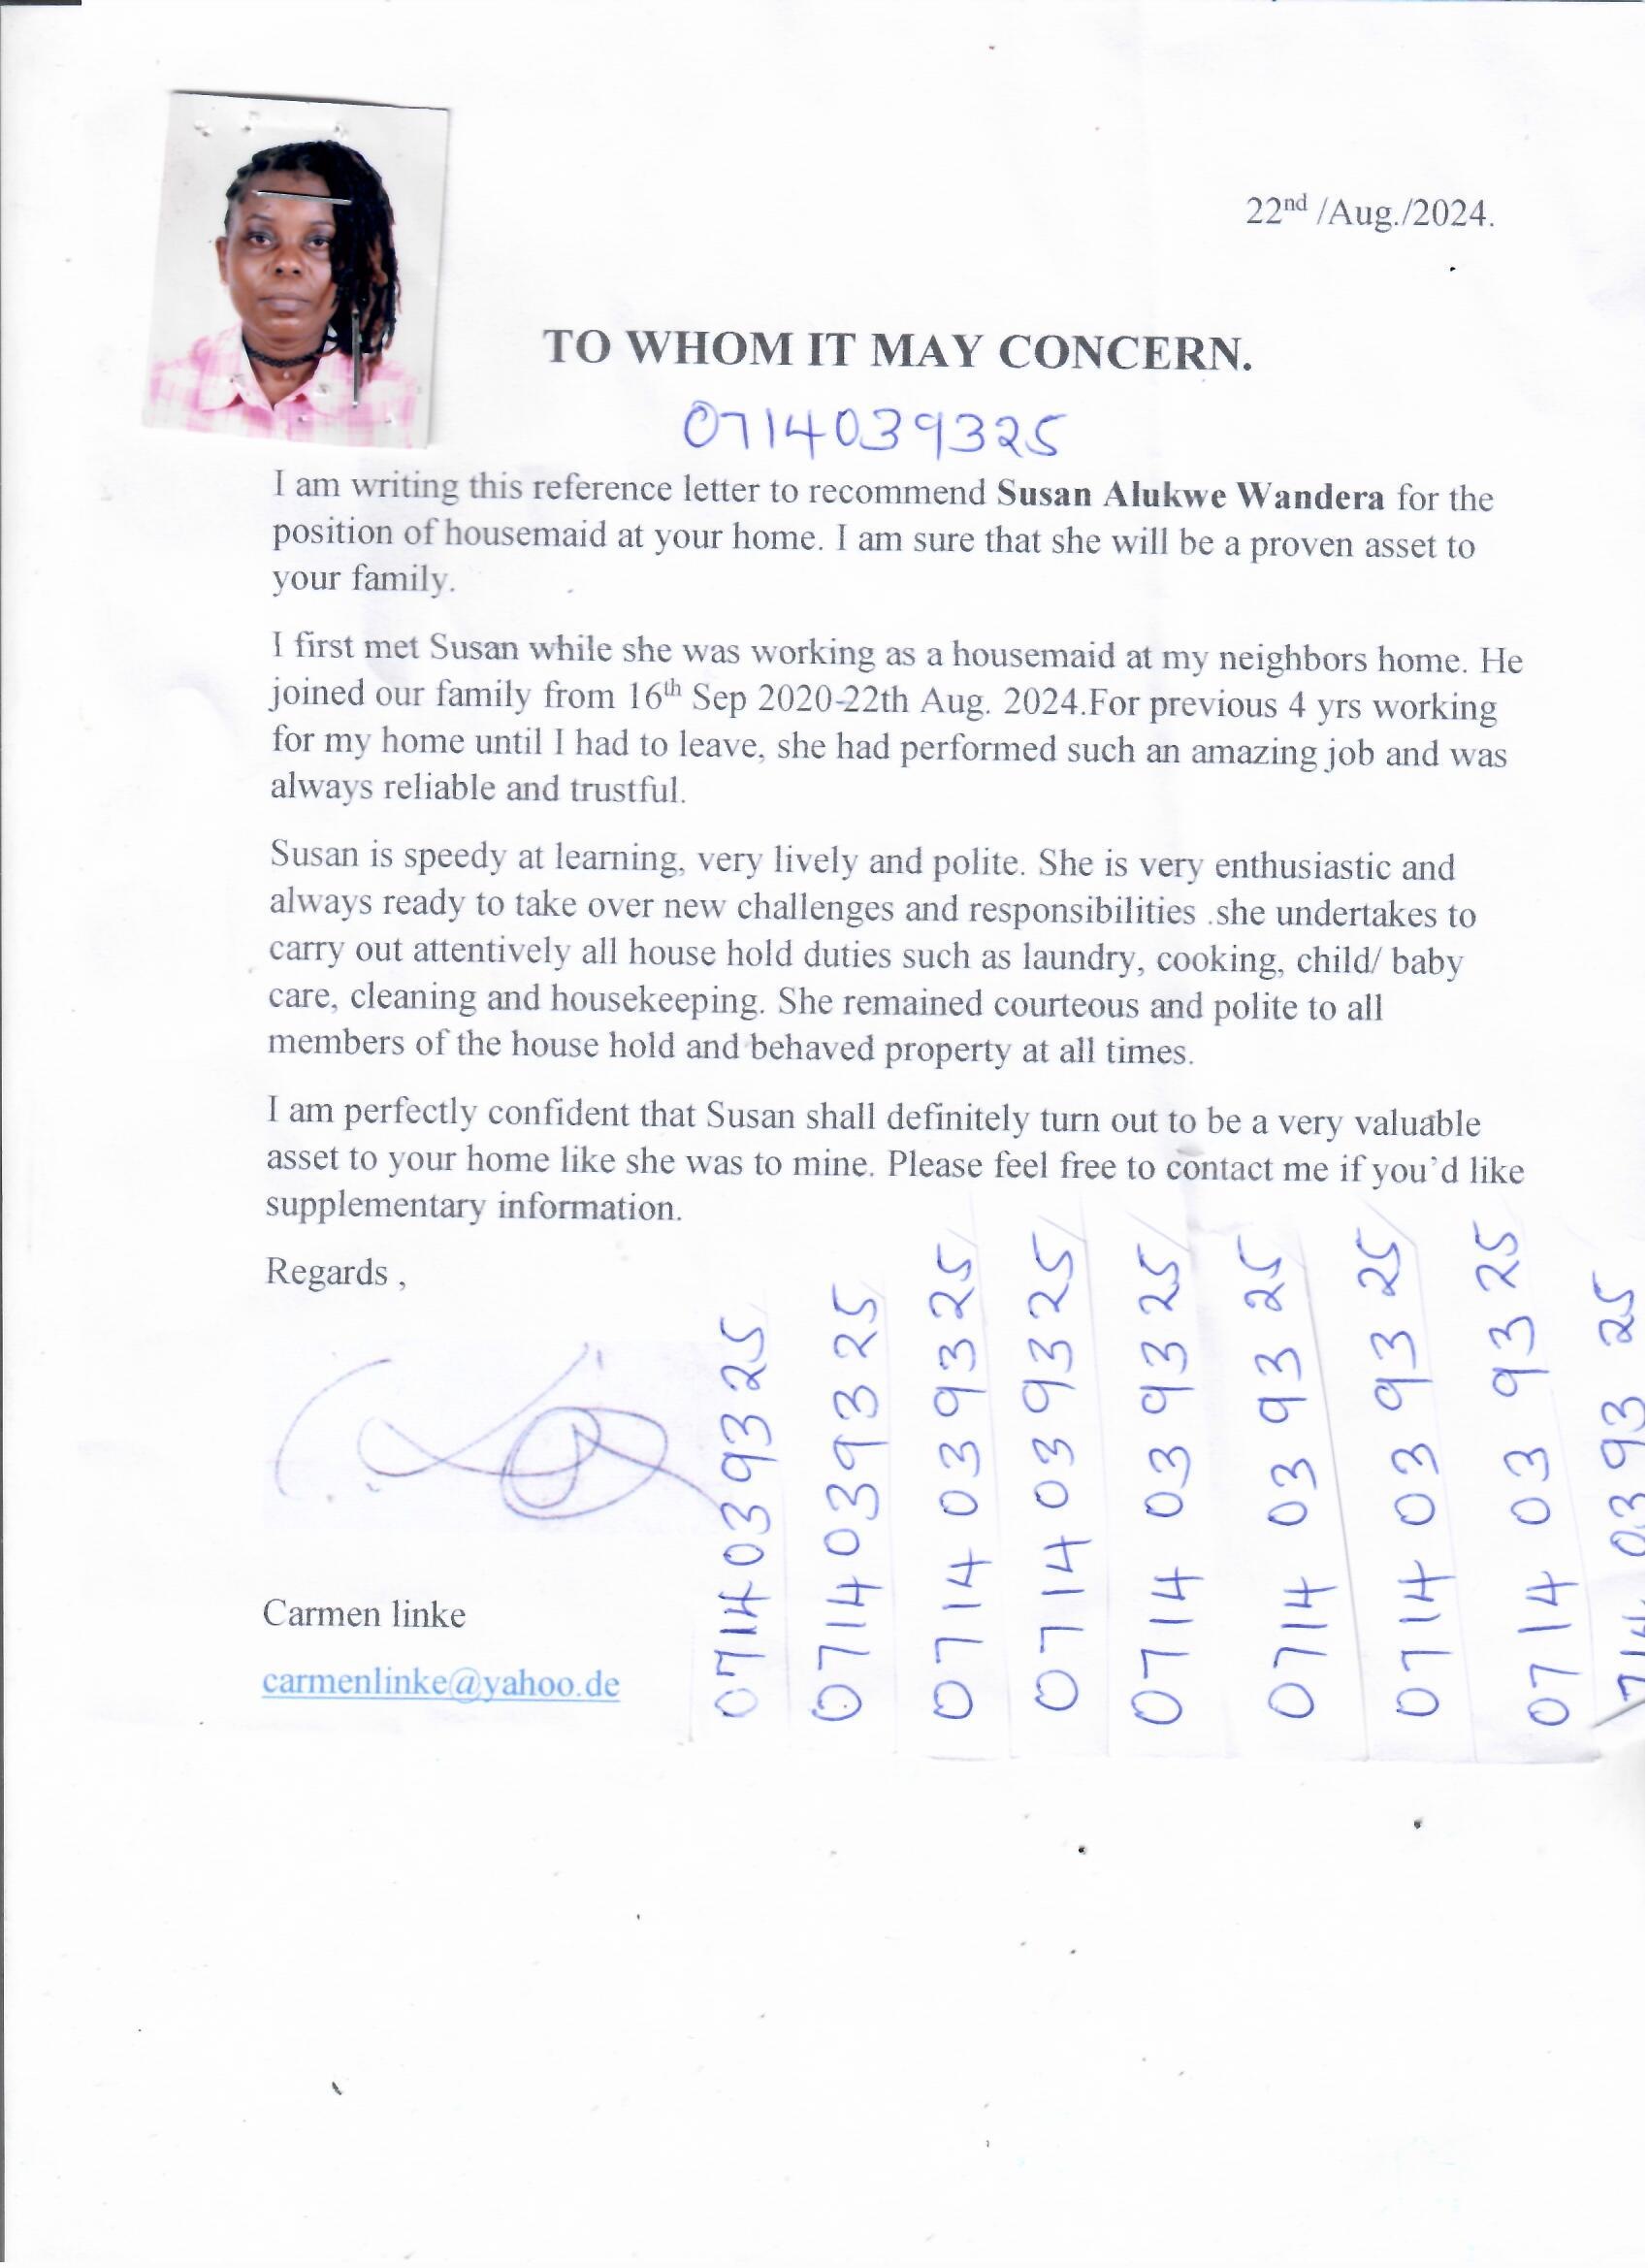 22nd /Aug./2024.
TO WHOM IT MAY CONCERN.
0714039325
I am writing this reference letter to recommend Susan Alukwe Wandera for the
position of housemaid at your home. I am sure that she will be a proven asset to
your family.
I first met Susan while she was working as a housemaid at my neighbors home. He
joined our family from 16th Sep 2020-22th Aug. 2024.For previous 4 yrs working
for my home until I had to leave, she had performed such an amazing job and was
always reliable and trustful.
Susan is speedy at learning, very lively and polite. She is very enthusiastic and
always ready to take over new challenges and responsibilities .she undertakes to
carry out attentively all house hold duties such as laundry, cooking, child/ baby
care, cleaning and housekeeping. She remained courteous and polite to all
members of the house hold and behaved property at all times.
I am perfectly confident that Susan shall definitely turn out to be a very valuable
asset to your home like she was to mine. Please feel free to contact me if you'd like
supplementary information.
Regards ,
Carmen linke
carmenlinke@yahoo.de
0714039325
0714039325
0714 039325
0714 039325
0714 03 9325
0714 03 93 25
0714 03 93 25
0714 03 93 25
714 0393 25